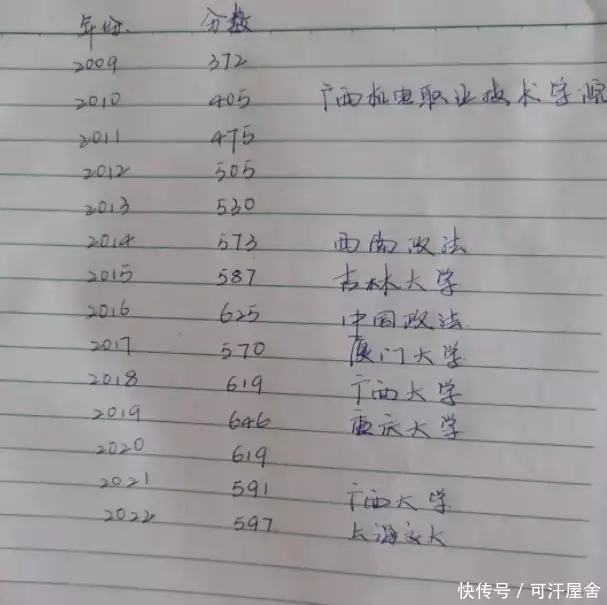 年份 分数
2009 372
2010 405 广西机电职业技术学院
2011 475
2012 505
2013 530
2014 573 西南政法
2015 587 吉林大学
2016 625 中国政法
2017 570 厦门大学
2018 619 广西大学
2019 646 重庆大学
2020 619
2021 591 广西大学
2022 597 上海交大
快传号 / 可汗屋舍